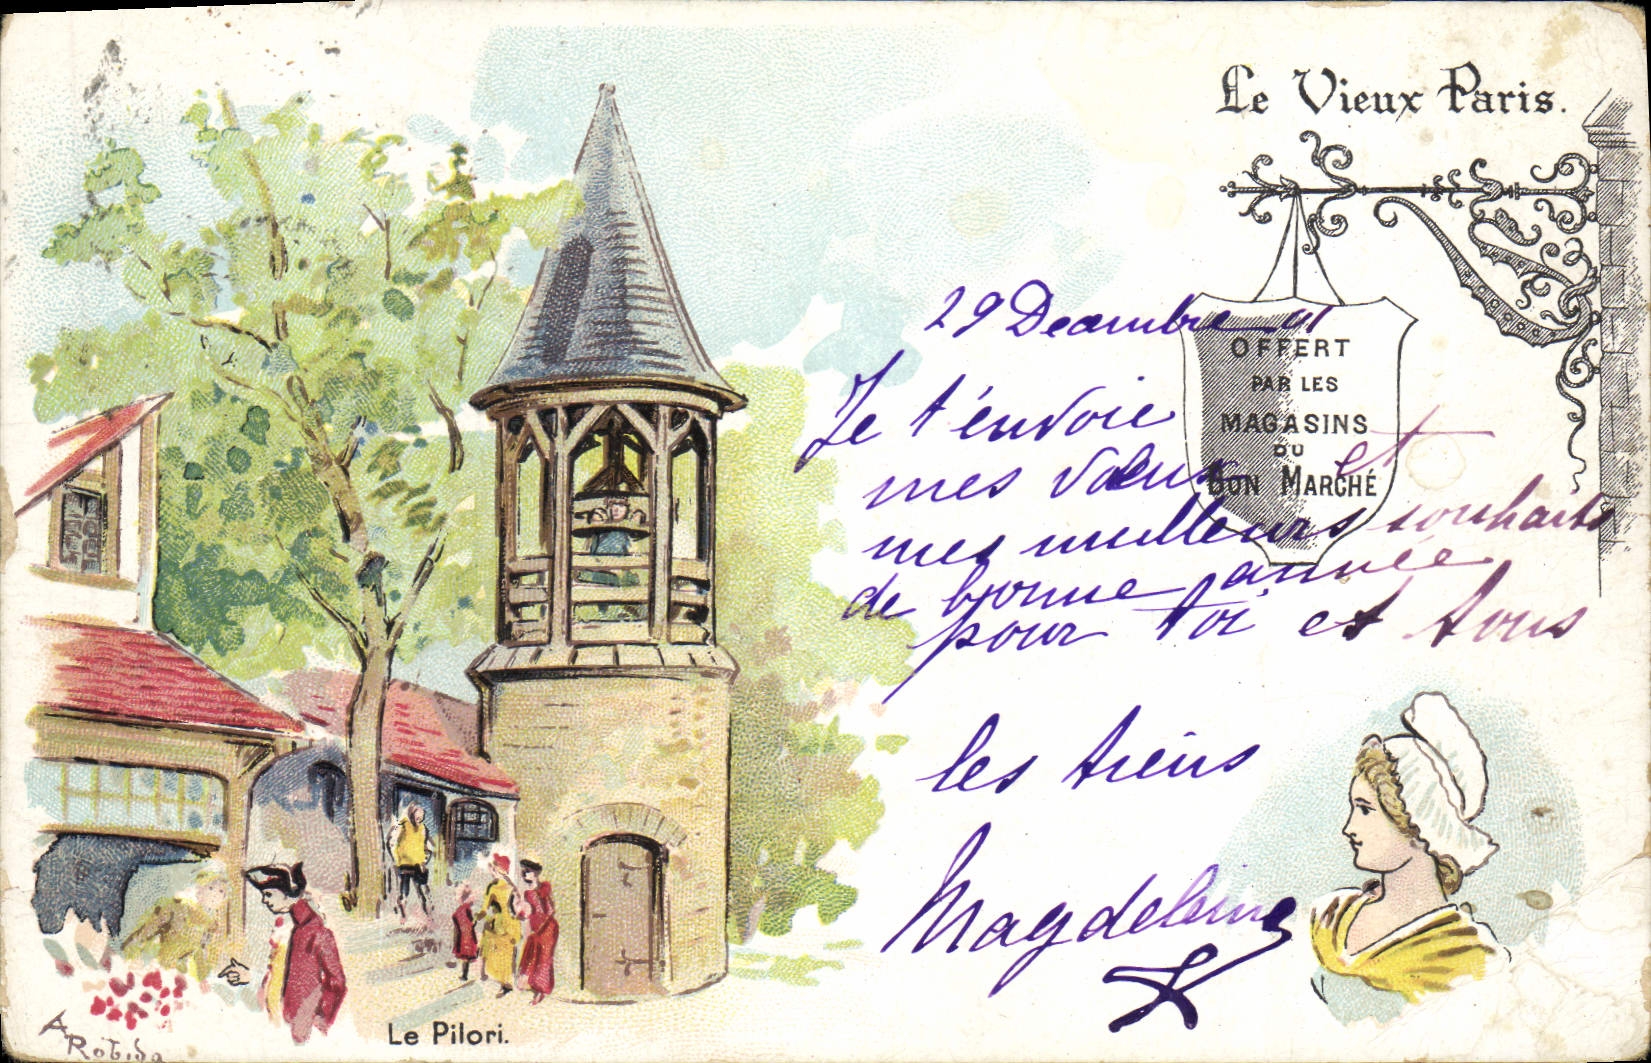 Le Vieux Paris.
OFFERT
PAR LES
MAGASINS
DU
BON MARCHÉ
29 Decembre 01
Je t'envoie
mes vœux et
mes meilleurs souhaits
de bonne année
pour toi et tous
les tiens
Magdeleine
Le Pilori.
A Robida